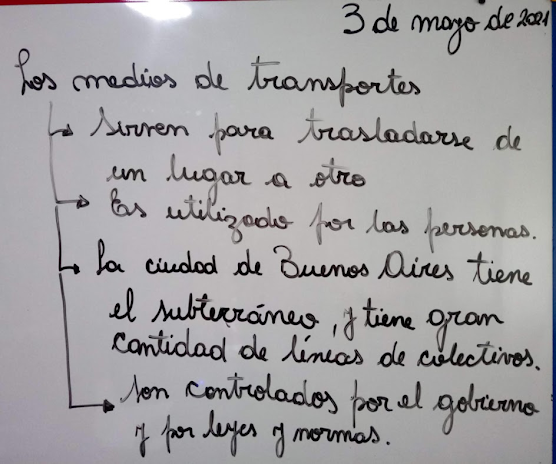 3 de mayo de 2021
Los medios de transportes
Sirven para trasladarse de
un lugar a otro
Es utilizado por las personas.
La ciudad de Buenos Aires tiene
el subterráneo, y tiene gran
cantidad de líneas de colectivos.
Son controlados por el gobierno
y por leyes y normas.